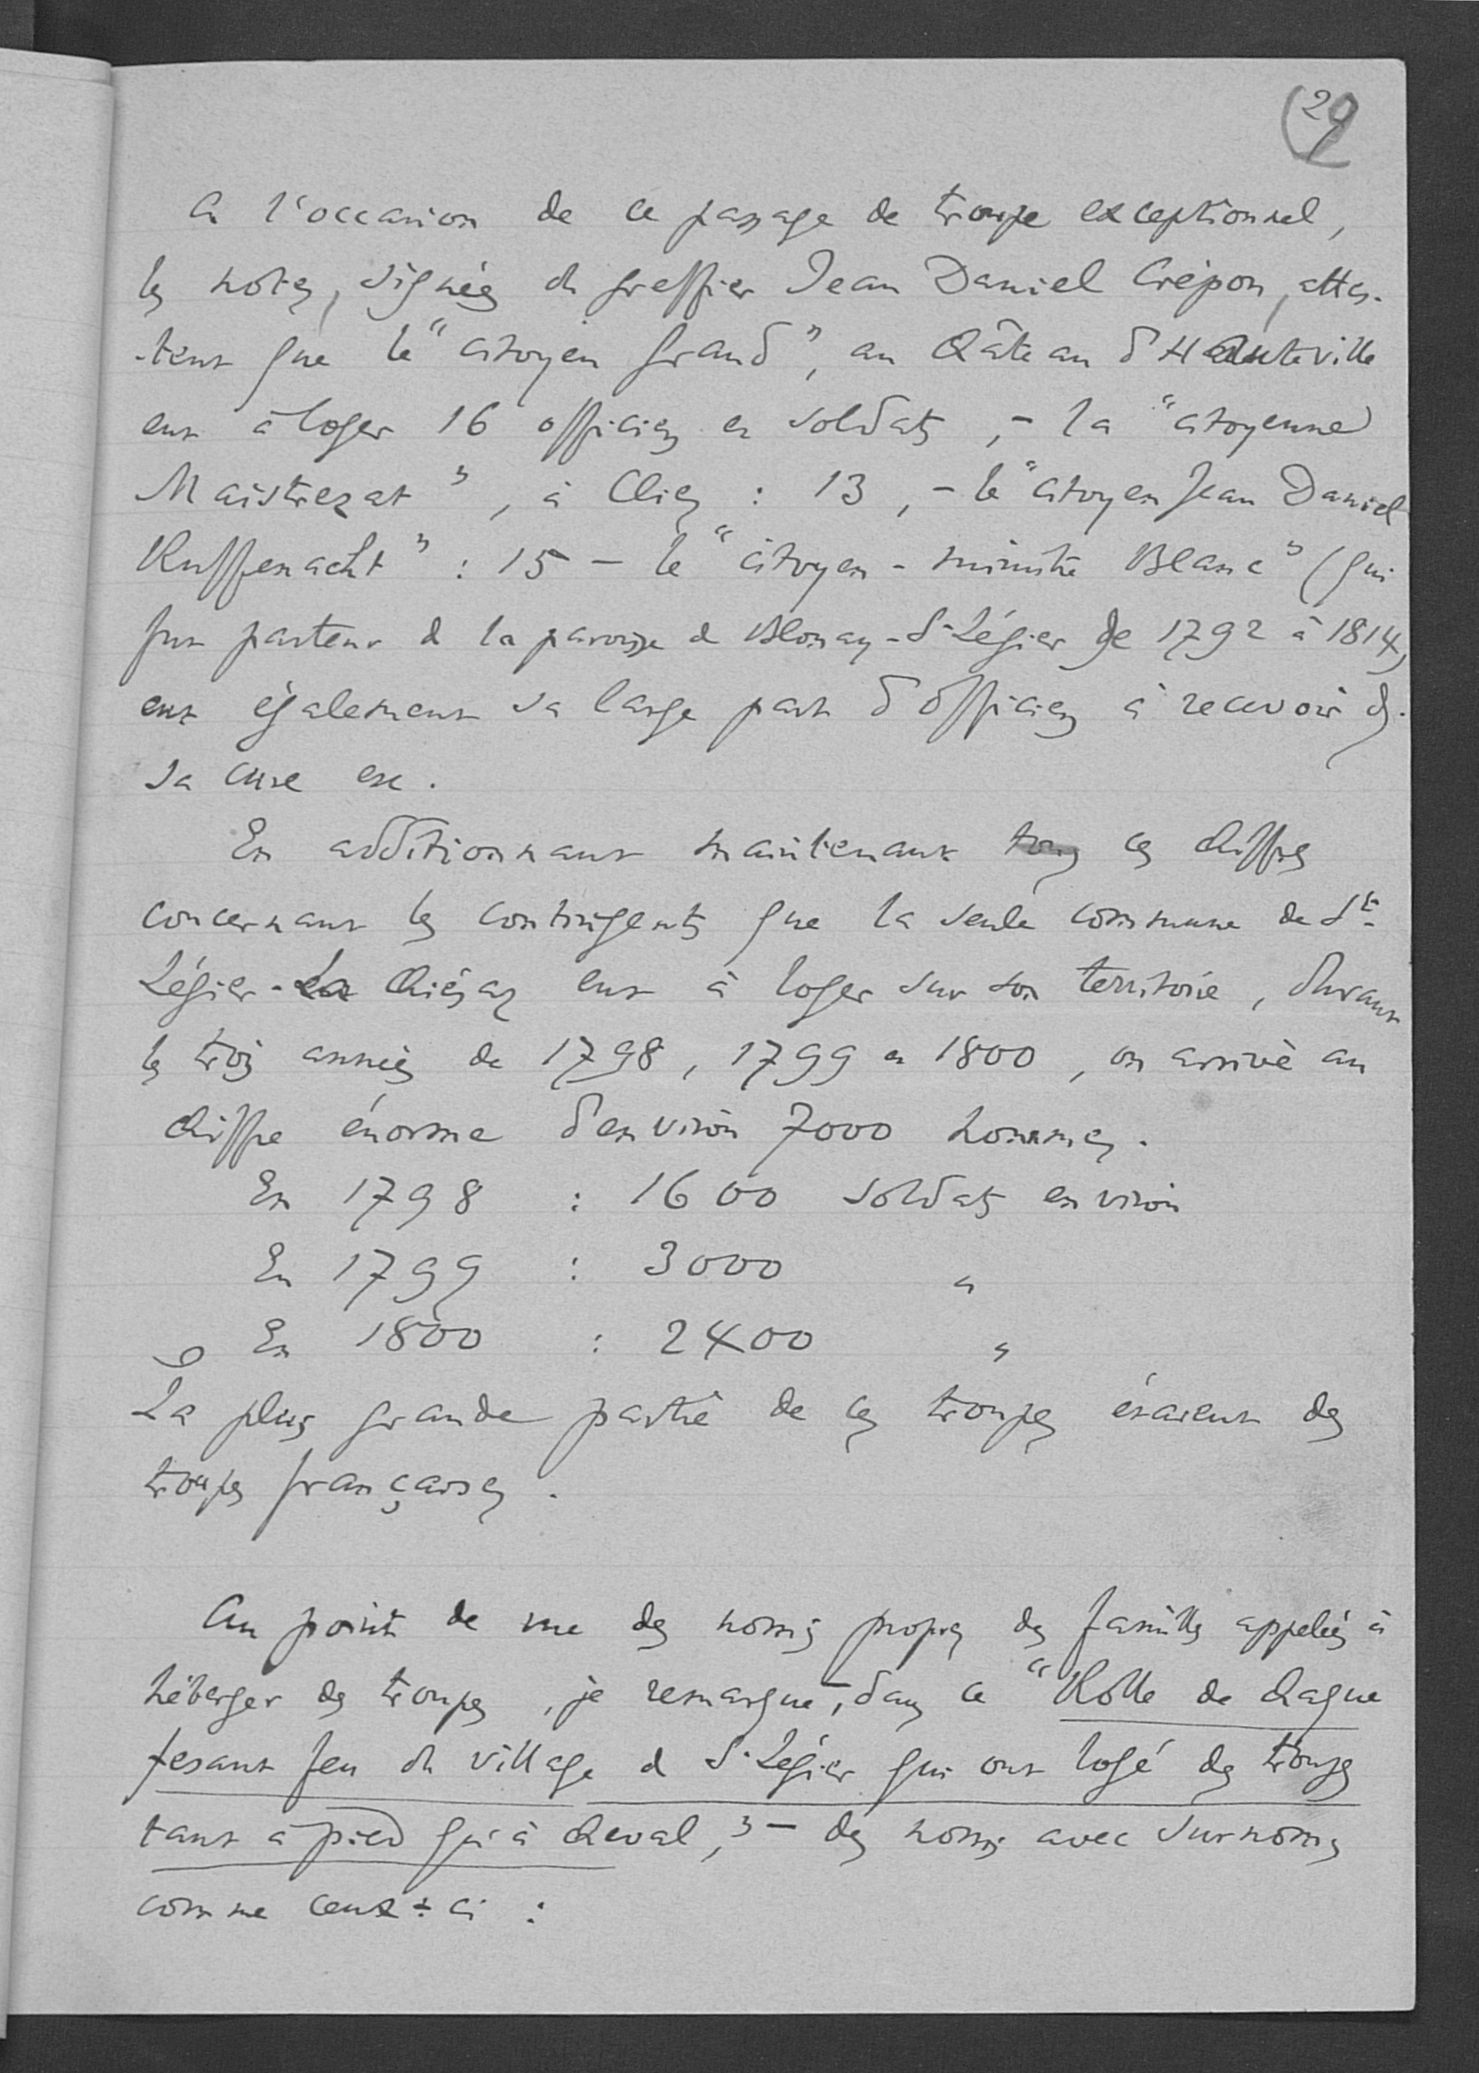 29
A l'occasion de ce passage de troupe exceptionnel,
les notes, signées du greffier Jean Daniel Crépon, attes-
-tent que le "citoyen Grand", au Château d'Hauteville
eut à loger 16 officiers et soldats, - la "citoyenne
Maistrezat", à Clies : 13, - le "citoyen Jean Daniel
Ruffenacht" : 15 - le "citoyen-ministre Blanc" (qui
fut pasteur de la paroisse de Blonay-St-Légier de 1792 à 1814,
eut également sa large part d'officiers à recevoir ds.
sa cure etc.
En additionnant maintenant tous ces chiffres
concernant les contingents que la seule commune de St-
Légier-La Chiésaz eut à loger sur son territoire, durant
les trois années de 1798, 1799 et 1800, on arrive au
chiffre énorme d'environ 7000 hommes.
En 1798 : 1600 soldats environ
En 1799 : 3000 "
En 1800 : 2400 "
La plus grande partie de ces troupes étaient des
troupes françaises.
Au point de vue des noms propres des familles appelées à
héberger des troupes, je remarque, dans ce "Rolle de chaque
fesant feu du village de St-Légier qui ont logé des troupes
tant à pied qu'à cheval," - des noms avec surnoms
comme ceux-ci :